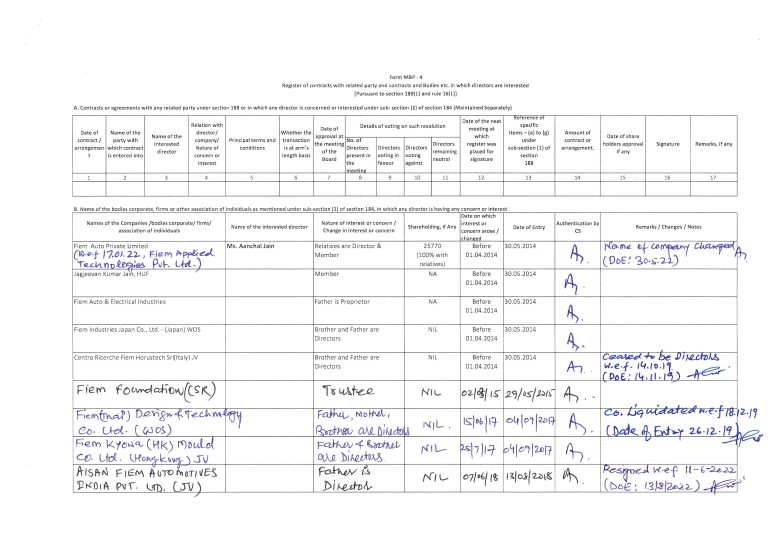 Form MBP - 4
Register of contracts with related party and contracts and Bodies etc. in which directors are interested
[Pursuant to section 189(1) and rule 16(1)]
A. Contracts or agreements with any related party under section 188 or in which any director is concerned or interested under sub- section (2) of section 184 (Maintained Separately)
Date of contract / arrangement
Name of the party with which contract is entered into
Name of the Interested director
Relation with director/ company/ Nature of concern or interest
Principal terms and conditions
Whether the transaction is at arm's length basis
Date of approval at the meeting of the Board
Details of voting on such resolution
No. of Directors present in the meeting
Directors voting in favour
Directors voting against
Directors remaining neutral
Date of the next meeting at which register was placed for signature
Reference of specific items – (a) to (g) under sub-section (1) of section 188
Amount of contract or arrangement.
Date of share holders approval if any
Signature
Remarks, if any
1 2 3 4 5 6 7 8 9 10 11 12 13 14 15 16 17
B. Name of the bodies corporate, firms or other association of individuals as mentioned under sub-section (1) of section 184, in which any director is having any concern or interest
Names of the Companies /bodies corporate/ firms/ association of individuals
Name of the interested director
Nature of interest or concern / Change in interest or concern
Shareholding, if Any
Date on which interest or concern arose / changed
Date of Entry
Authentication by CS
Remarks / Changes / Notes
Fiem Auto Private Limited
(w.e.f 17.01.22, Fiem Applied
Technologies Pvt. Ltd.)
Ms. Aanchal Jain
Relatives are Director & Member
25770 (100% with relatives)
Before 01.04.2014
30.05.2014
Name of company changed
(DoE: 30.5.22)
Jagjeevan Kumar Jain, HUF
Member
NA
Before 01.04.2014
30.05.2014
Fiem Auto & Electrical Industries
Father is Proprietor
NA
Before 01.04.2014
30.05.2014
Fiem Industries Japan Co., Ltd. - (Japan) WOS
Brother and Father are Directors
NIL
Before 01.04.2014
30.05.2014
Centro Ricerche Fiem Horustech Srl(Italy) JV
Brother and Father are Directors
NIL
Before 01.04.2014
30.05.2014
Ceased to be Directors
w.e.f. 14.10.19
(DoE: 14.11.19)
Fiem Foundation (CSR)
Trustee
NIL
29/05/2015
Design & Technology
Co. Ltd. (WOS)
Father, Mother,
Brother are Directors
NIL.
15/06/17
04/09/2017
Co. Liquidated w.e.f 18.12.19
(Date of Entry 26.12.19)
Fiem Kyowa (HK) Mould
Co. Ltd. (Hongkong) JV
Father & Brother
are Directors.
NIL
25/7/17
04/09/2017
AISAN FIEM AUTOMOTIVES
INDIA PVT. LTD. (JV)
Father is
Director
NIL
07/06/18
13/08/2018
Resigned w.e.f 11-6-2022
(DoE: 13/8/2022)